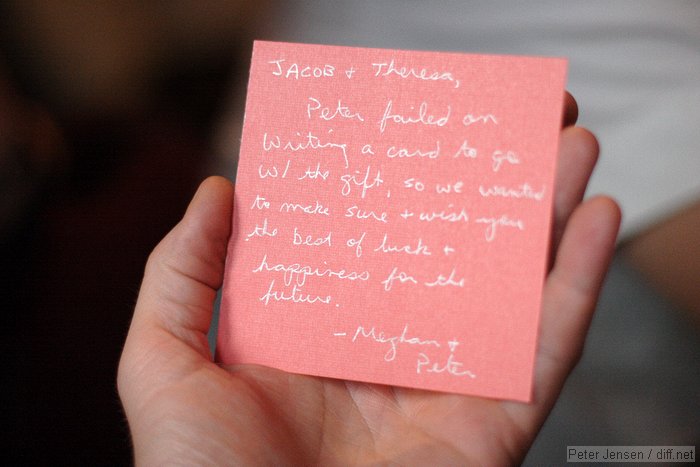 JACOB + Theresa,
Peter failed on
writing a card to go
w/ the gift, so we wanted
to make sure + wish you
the best of luck +
happiness for the
future.
- Meghan +
Peter
Peter Jensen / diff.net